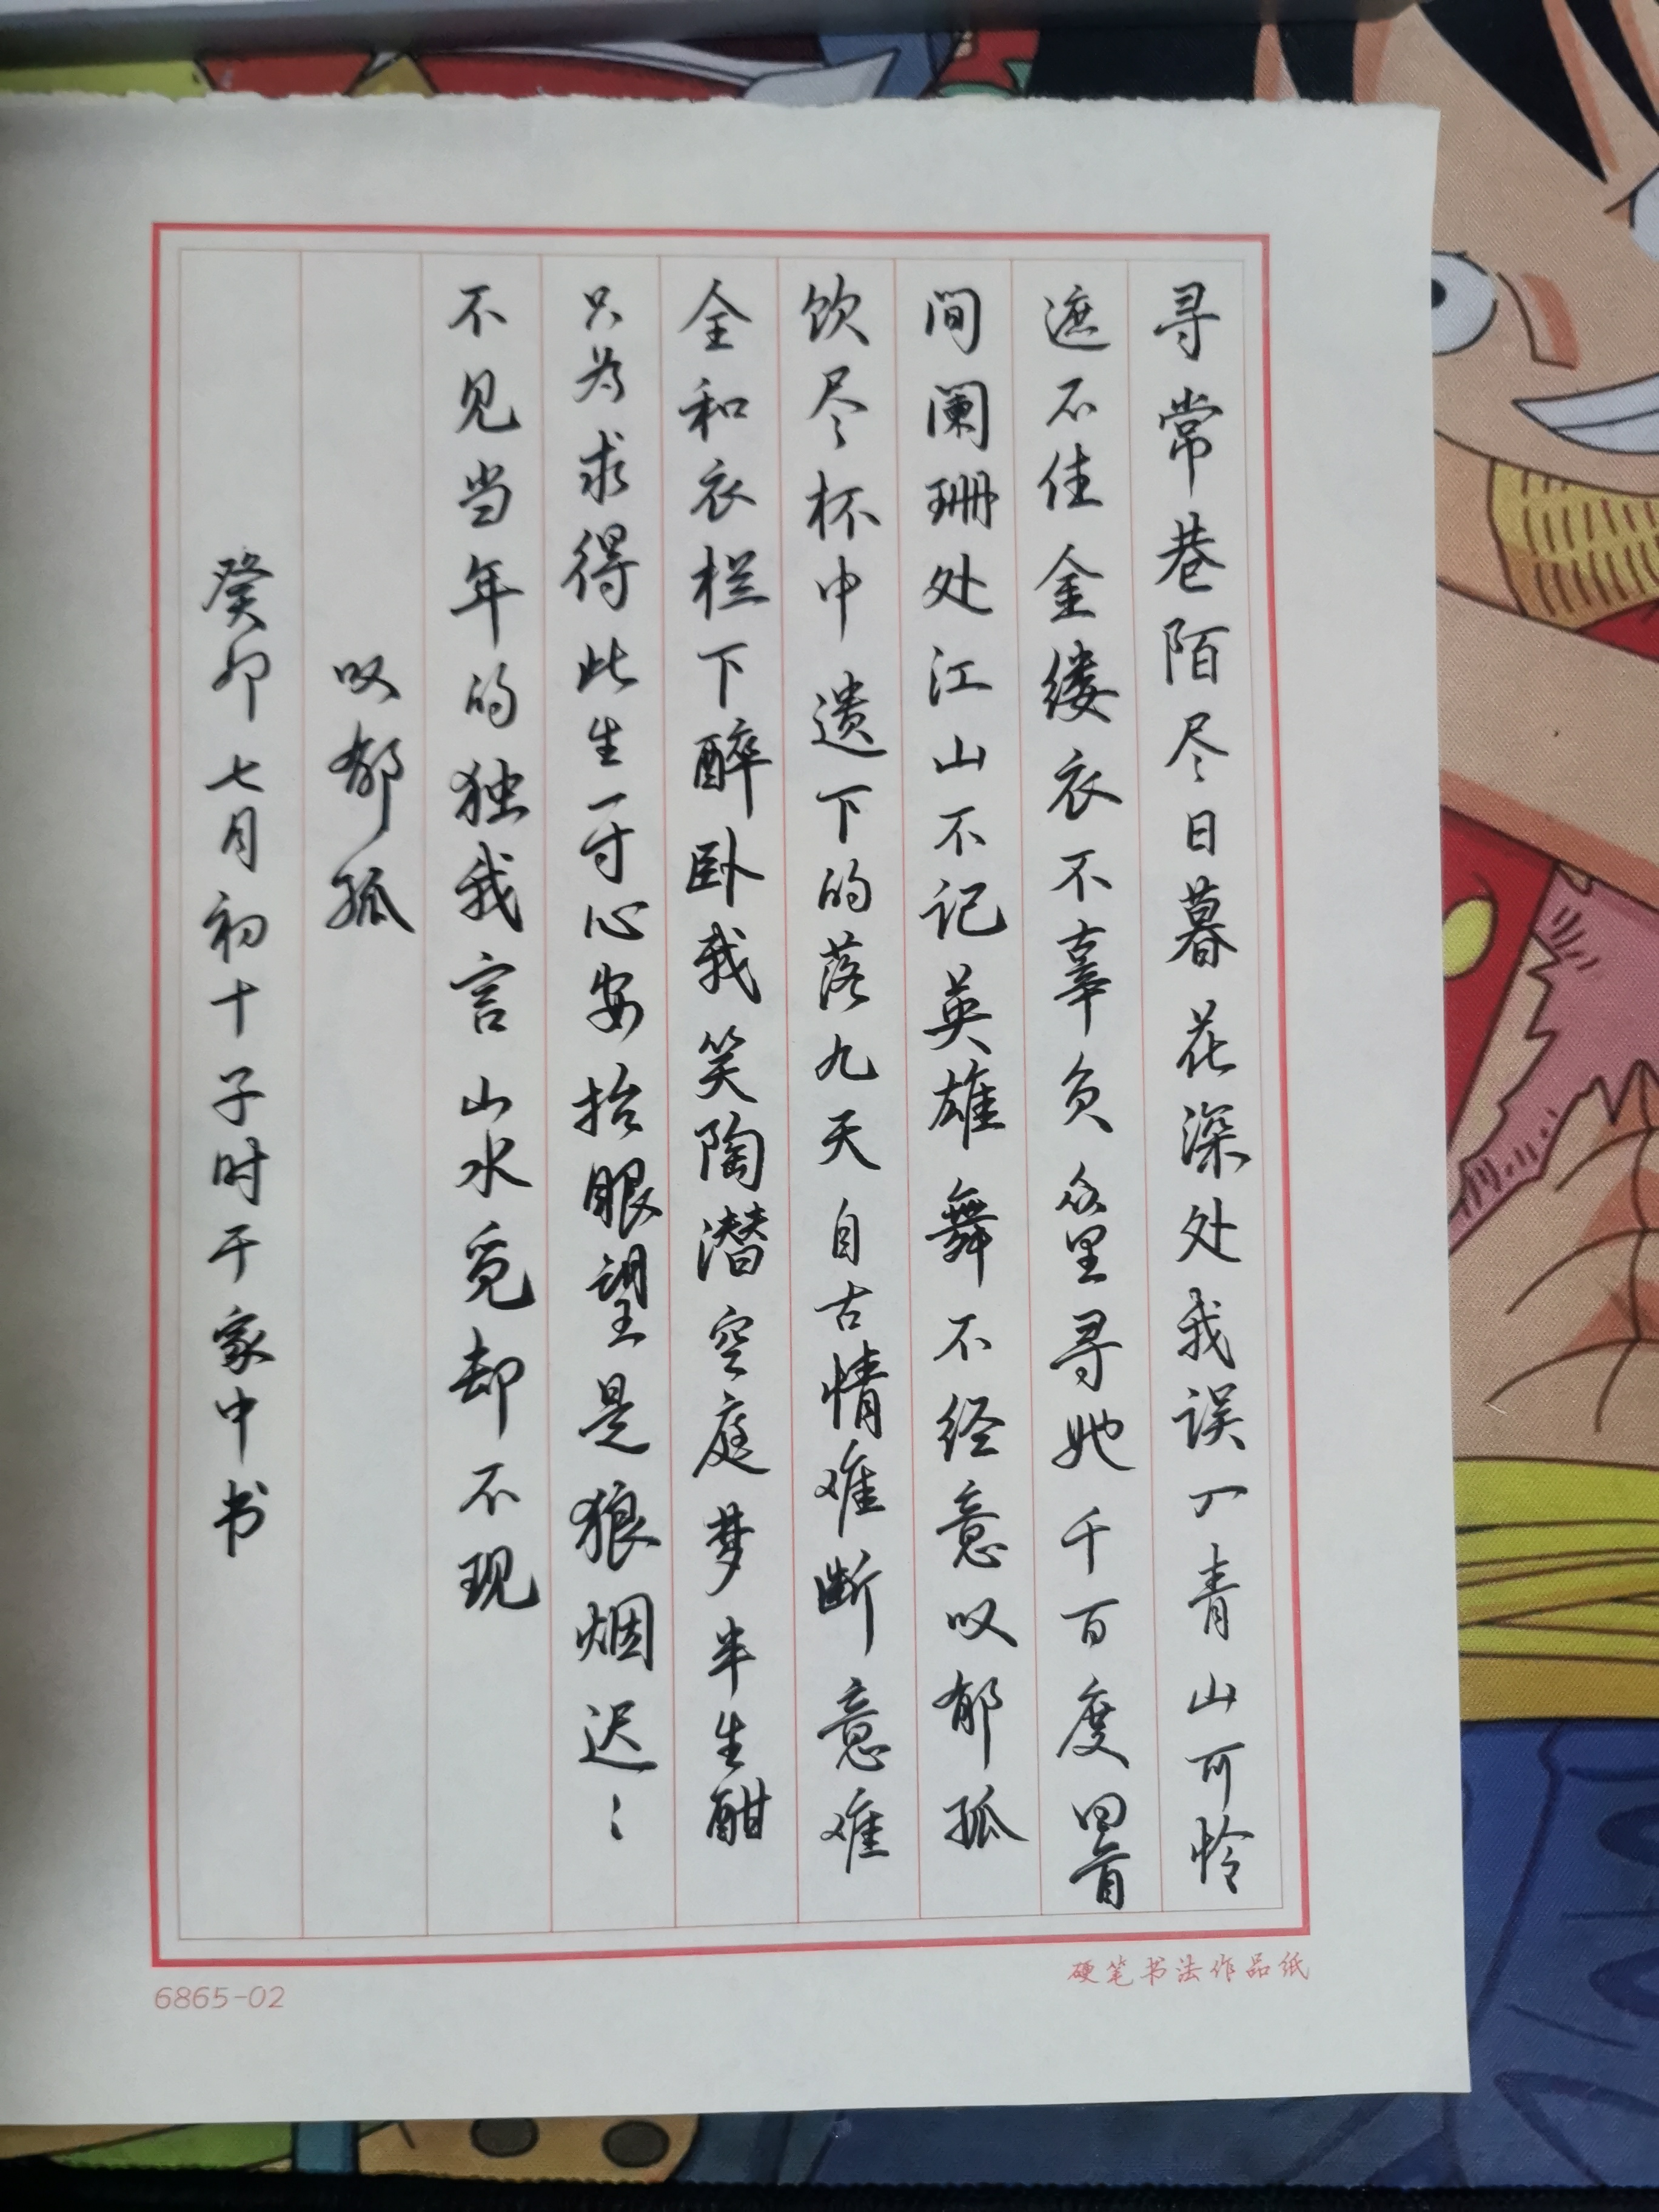 寻常巷陌尽日暮花深处我误了青山可怜
遮不住金缕衣不辜负众里寻她千百度回首
间阑珊处江山不记英雄舞不经意叹郁孤
饮尽杯中遗下的落九天自古情难断意难
全和衣栏下醉卧我笑陶潜空庭梦半生酣
只为求得此生一寸心安抬眼望是狼烟迟〻
不见当年的独我言山水觅却不现
叹郁孤
癸卯七月初十子时于家中书
硬笔书法作品纸
6865-02